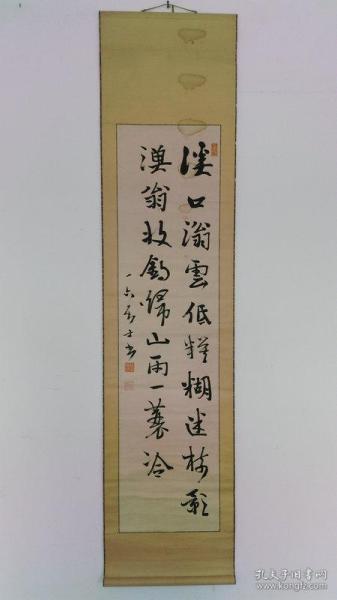 溪口滃雲低糢糊迷樹影
漁翁收釣歸山雨一蓑冷
一六居士書
孔夫子旧书网